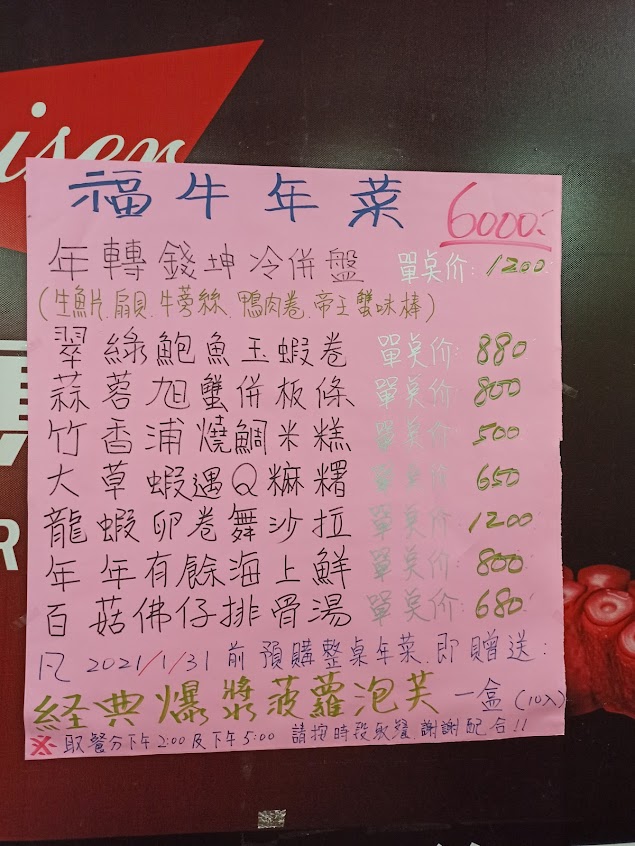 isen
福牛年菜 6000.-
年轉錢坤冷併盤 單點价:1200
(生魚片.扇貝.牛蒡絲.鴨肉卷.帝王蟹味棒)
翠綠鮑魚玉蝦卷 單點价:880
蒜蓉旭蟹併板條 單點价:800
竹香浦燒鯛米糕 單點价:500
大草蝦遇Q糍糬 單點价:650
龍蝦卵卷舞沙拉 單點价:1200
年年有餘海上鮮 單點价:800
百菇佛仔排骨湯 單點价:680
凡2021/1/31前預購整桌年菜.即贈送:
経典爆漿菠蘿泡芙一盒(10入)
※取餐分下午2:00及下午5:00 請按時段取餐.謝謝配合!!
R